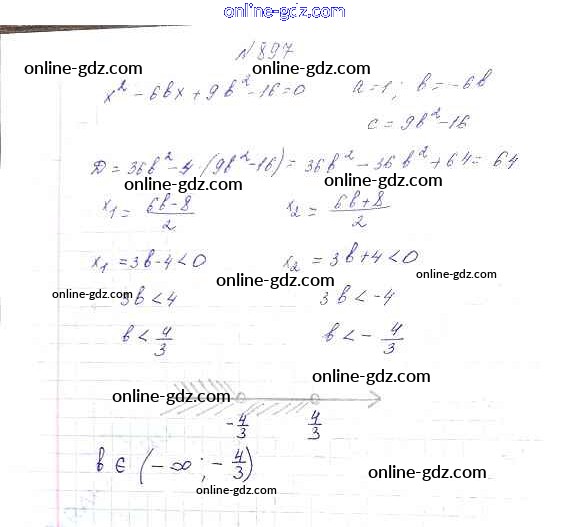 online-gdz.com
№897
online-gdz.com online-gdz.com
x² - 6bx + 9b² - 16 = 0 a = 1; b = -6b
c = 9b² - 16
online-gdz.com
D = 36b² - 4·(9b² - 16) = 36b² - 36b² + 64 = 64
online-gdz.com online-gdz.com
x₁ = (6b - 8)/2 x₂ = (6b + 8)/2
x₁ = 3b - 4 < 0 x₂ = 3b + 4 < 0
online-gdz.com online-gdz.com
online-gdz.com
3b < 4 3b < -4
b < 4/3 b < - 4/3
online-gdz.com
online-gdz.com
-4/3 4/3
b ∈ (-∞; -4/3)
online-gdz.com
online-gdz.com